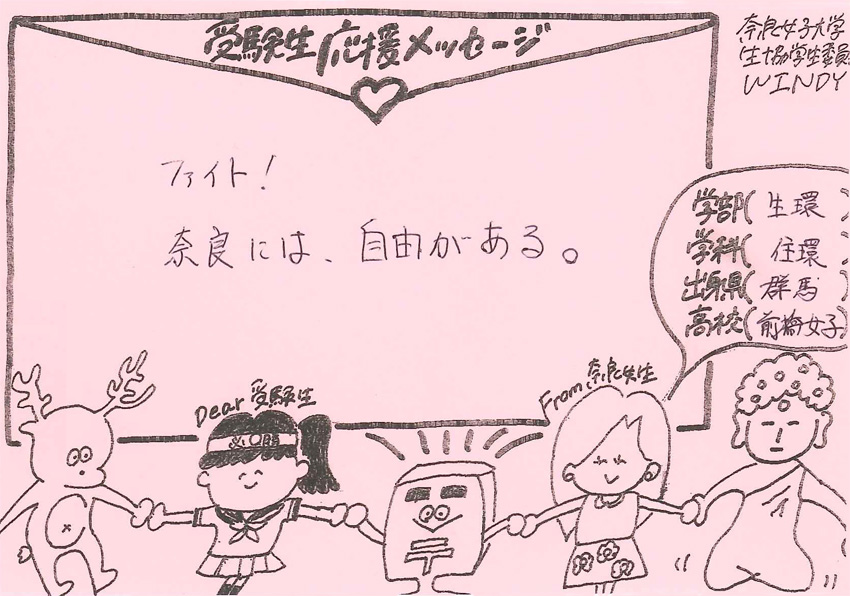 受験生応援メッセージ
奈良女子大学
生協学生委員
WINDY
ファイト！
奈良には、自由がある。
学部(生環)
学科(住環)
出身県(群馬)
高校(前橋女子)
Dear 受験生
From 奈良女生
必勝
〒